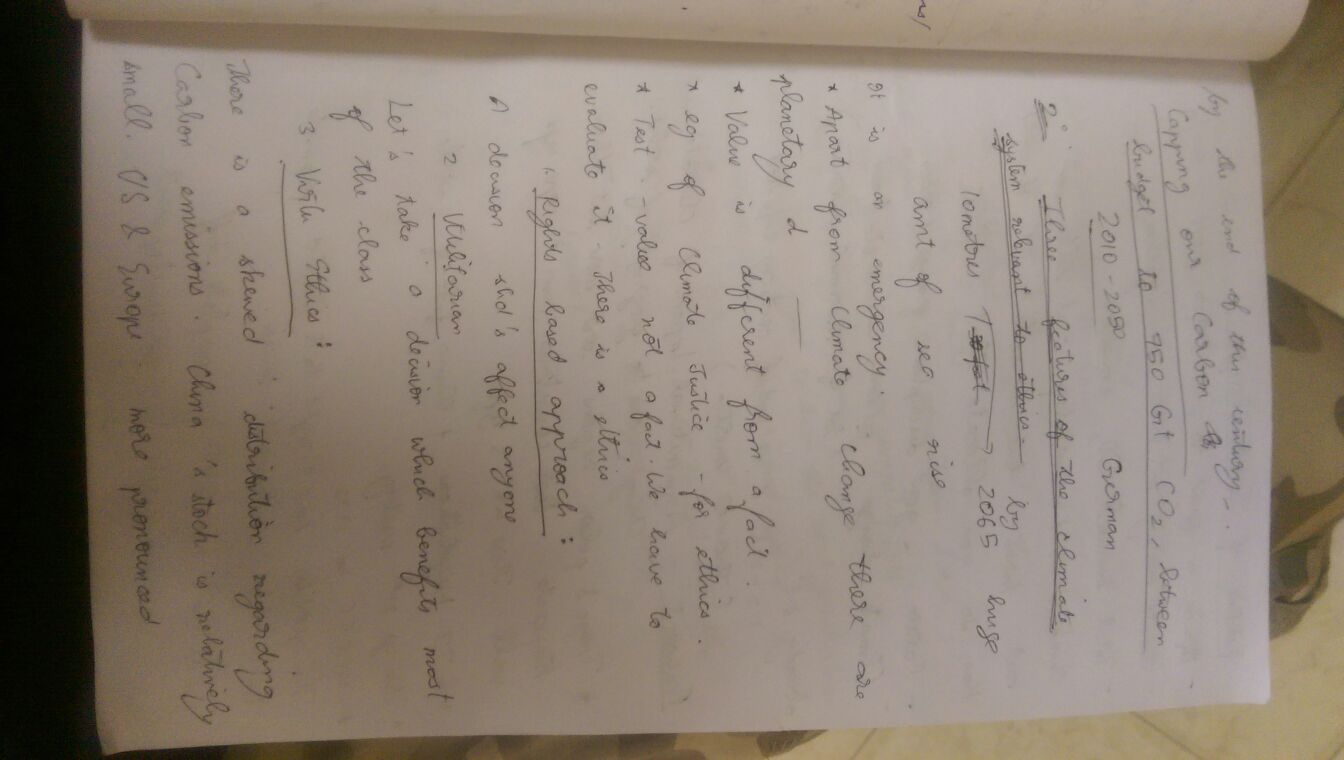 by the end of this century -.
Capping our Carbon
budget to 750 Gt CO2, between
2010-2050 German
Three features of the climate
system relevant to ethics - by
10metres 2065 huge
amt of sea rise
It is an emergency.
* Apart from Climate change there are
planetary d
* Value is different from a fact.
* eg of Climate Justice - for ethics.
* Test - value not a fact. We have to
evaluate it. There is a ethics
1. Rights based approach:
A decision shd's affect anyone
2 Utilitarian
Let's take a decision which benefits most
of the class
3 Virtu Ethics:
There is a skewed distribution regarding
Carbon emissions. China's stock is relatively
small. US & Europe more pronounced